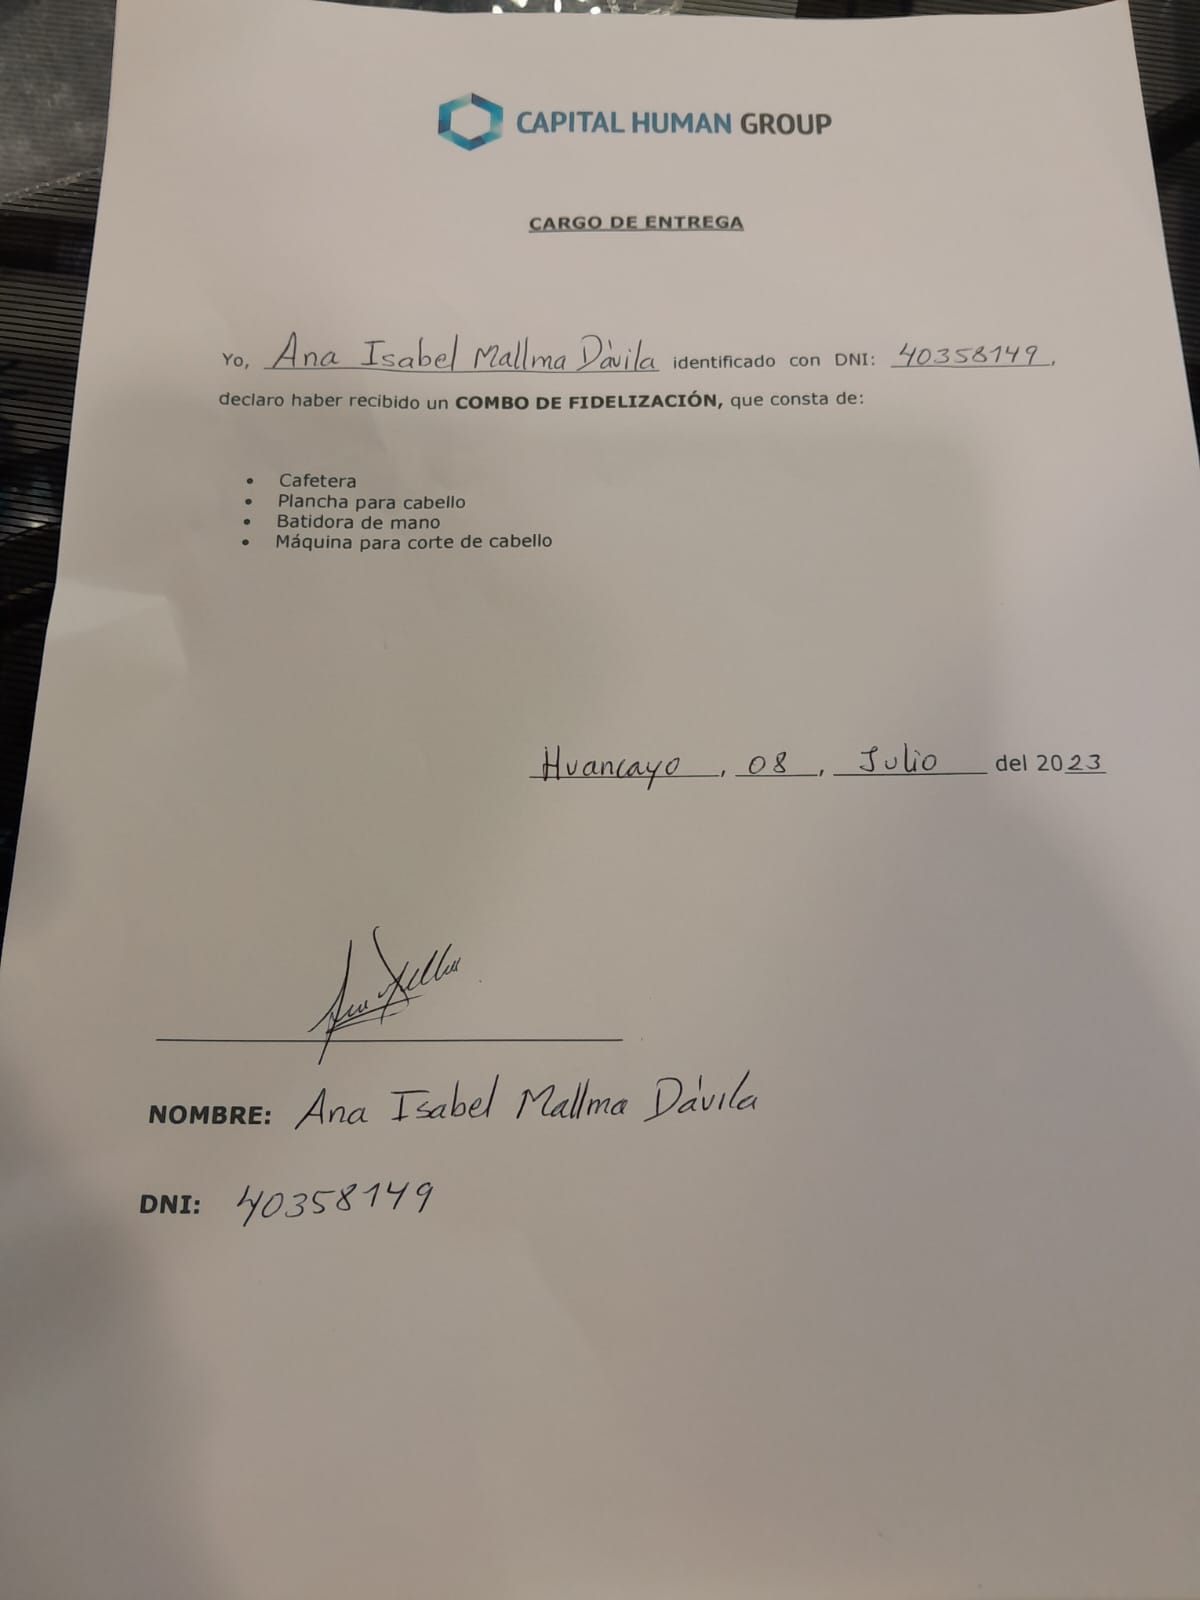 CAPITAL HUMAN GROUP
CARGO DE ENTREGA
Yo, Ana Isabel Mallma Dávila identificado con DNI: 40358149,
declaro haber recibido un COMBO DE FIDELIZACIÓN, que consta de:
• Cafetera
• Plancha para cabello
• Batidora de mano
• Máquina para corte de cabello
Huancayo, 08, Julio del 2023
NOMBRE: Ana Isabel Mallma Dávila
DNI: 40358149